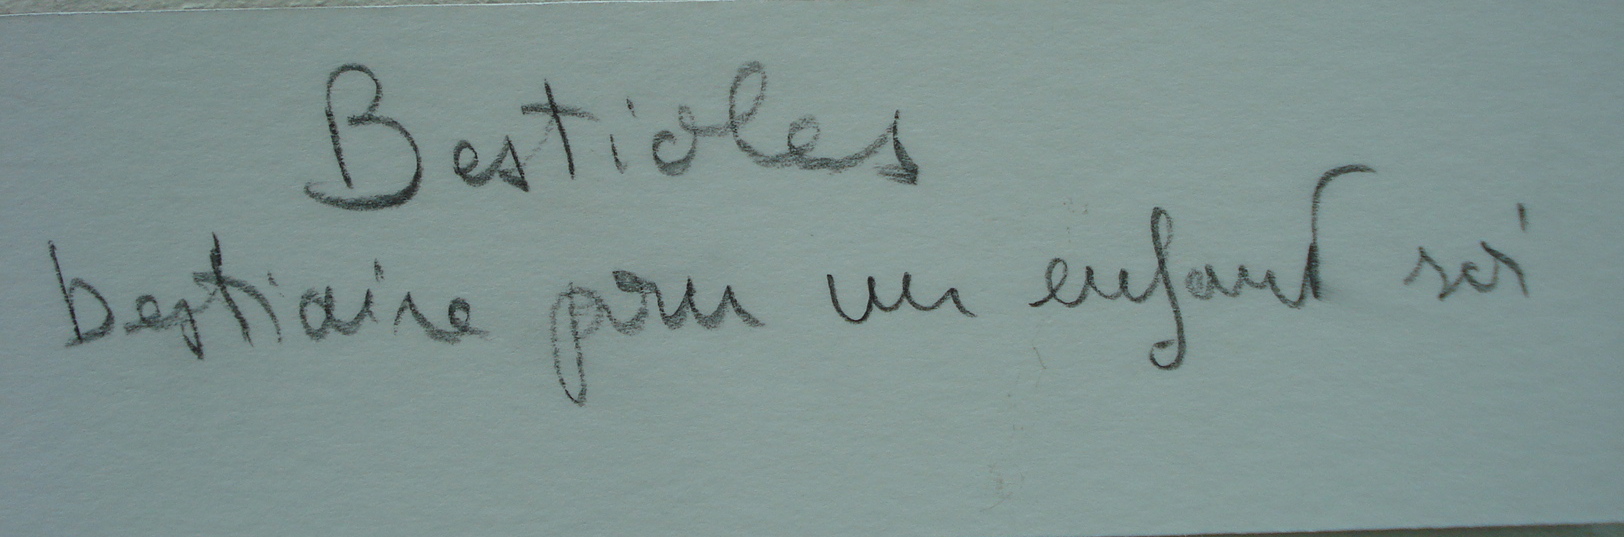 Bestioles
bestiaire pour un enfant